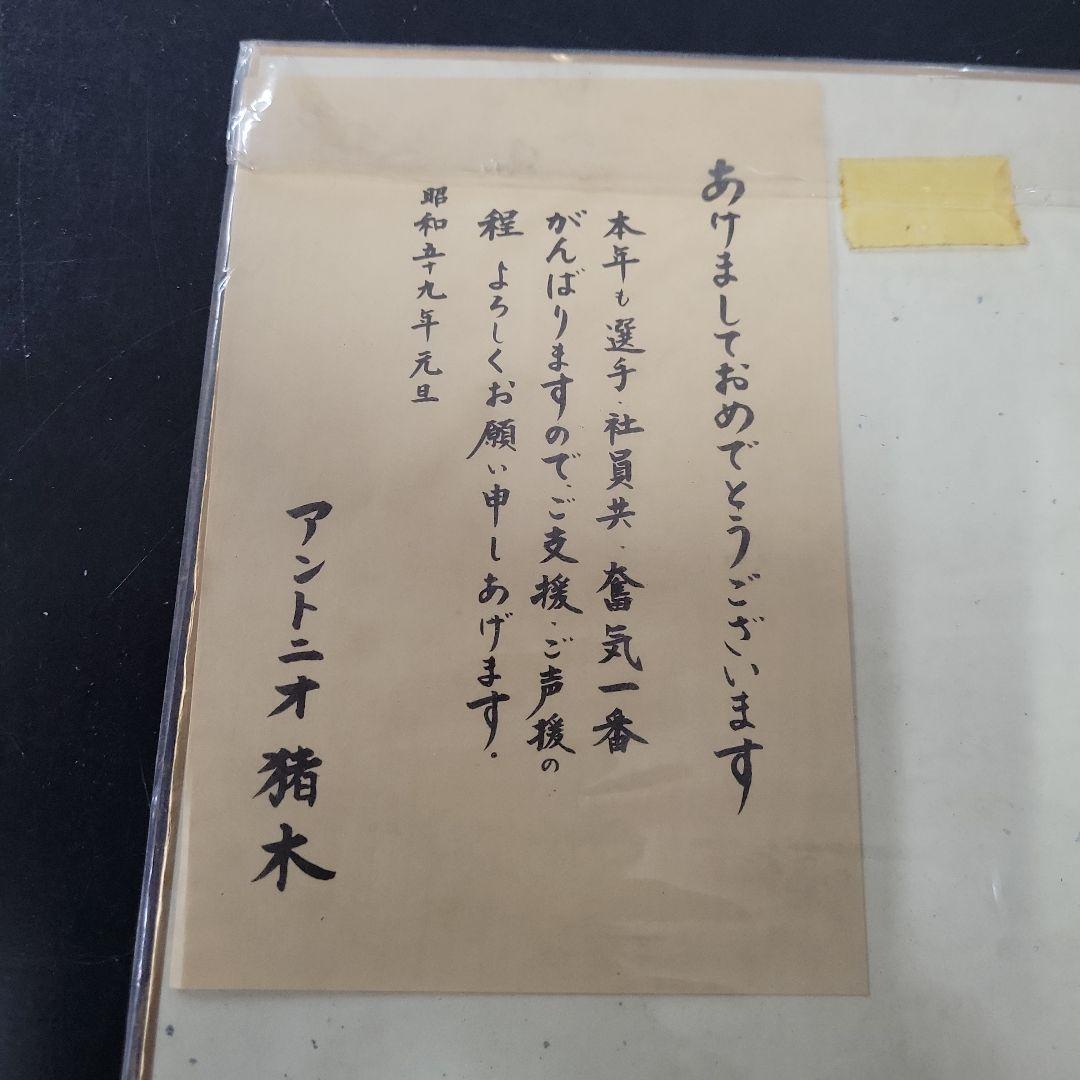 あけましておめでとうございます
本年も選手・社員共、奮気一番
がんばりますので、ご支援・ご声援の
程 よろしくお願い申しあげます。
昭和五十九年元旦
アントニオ猪木